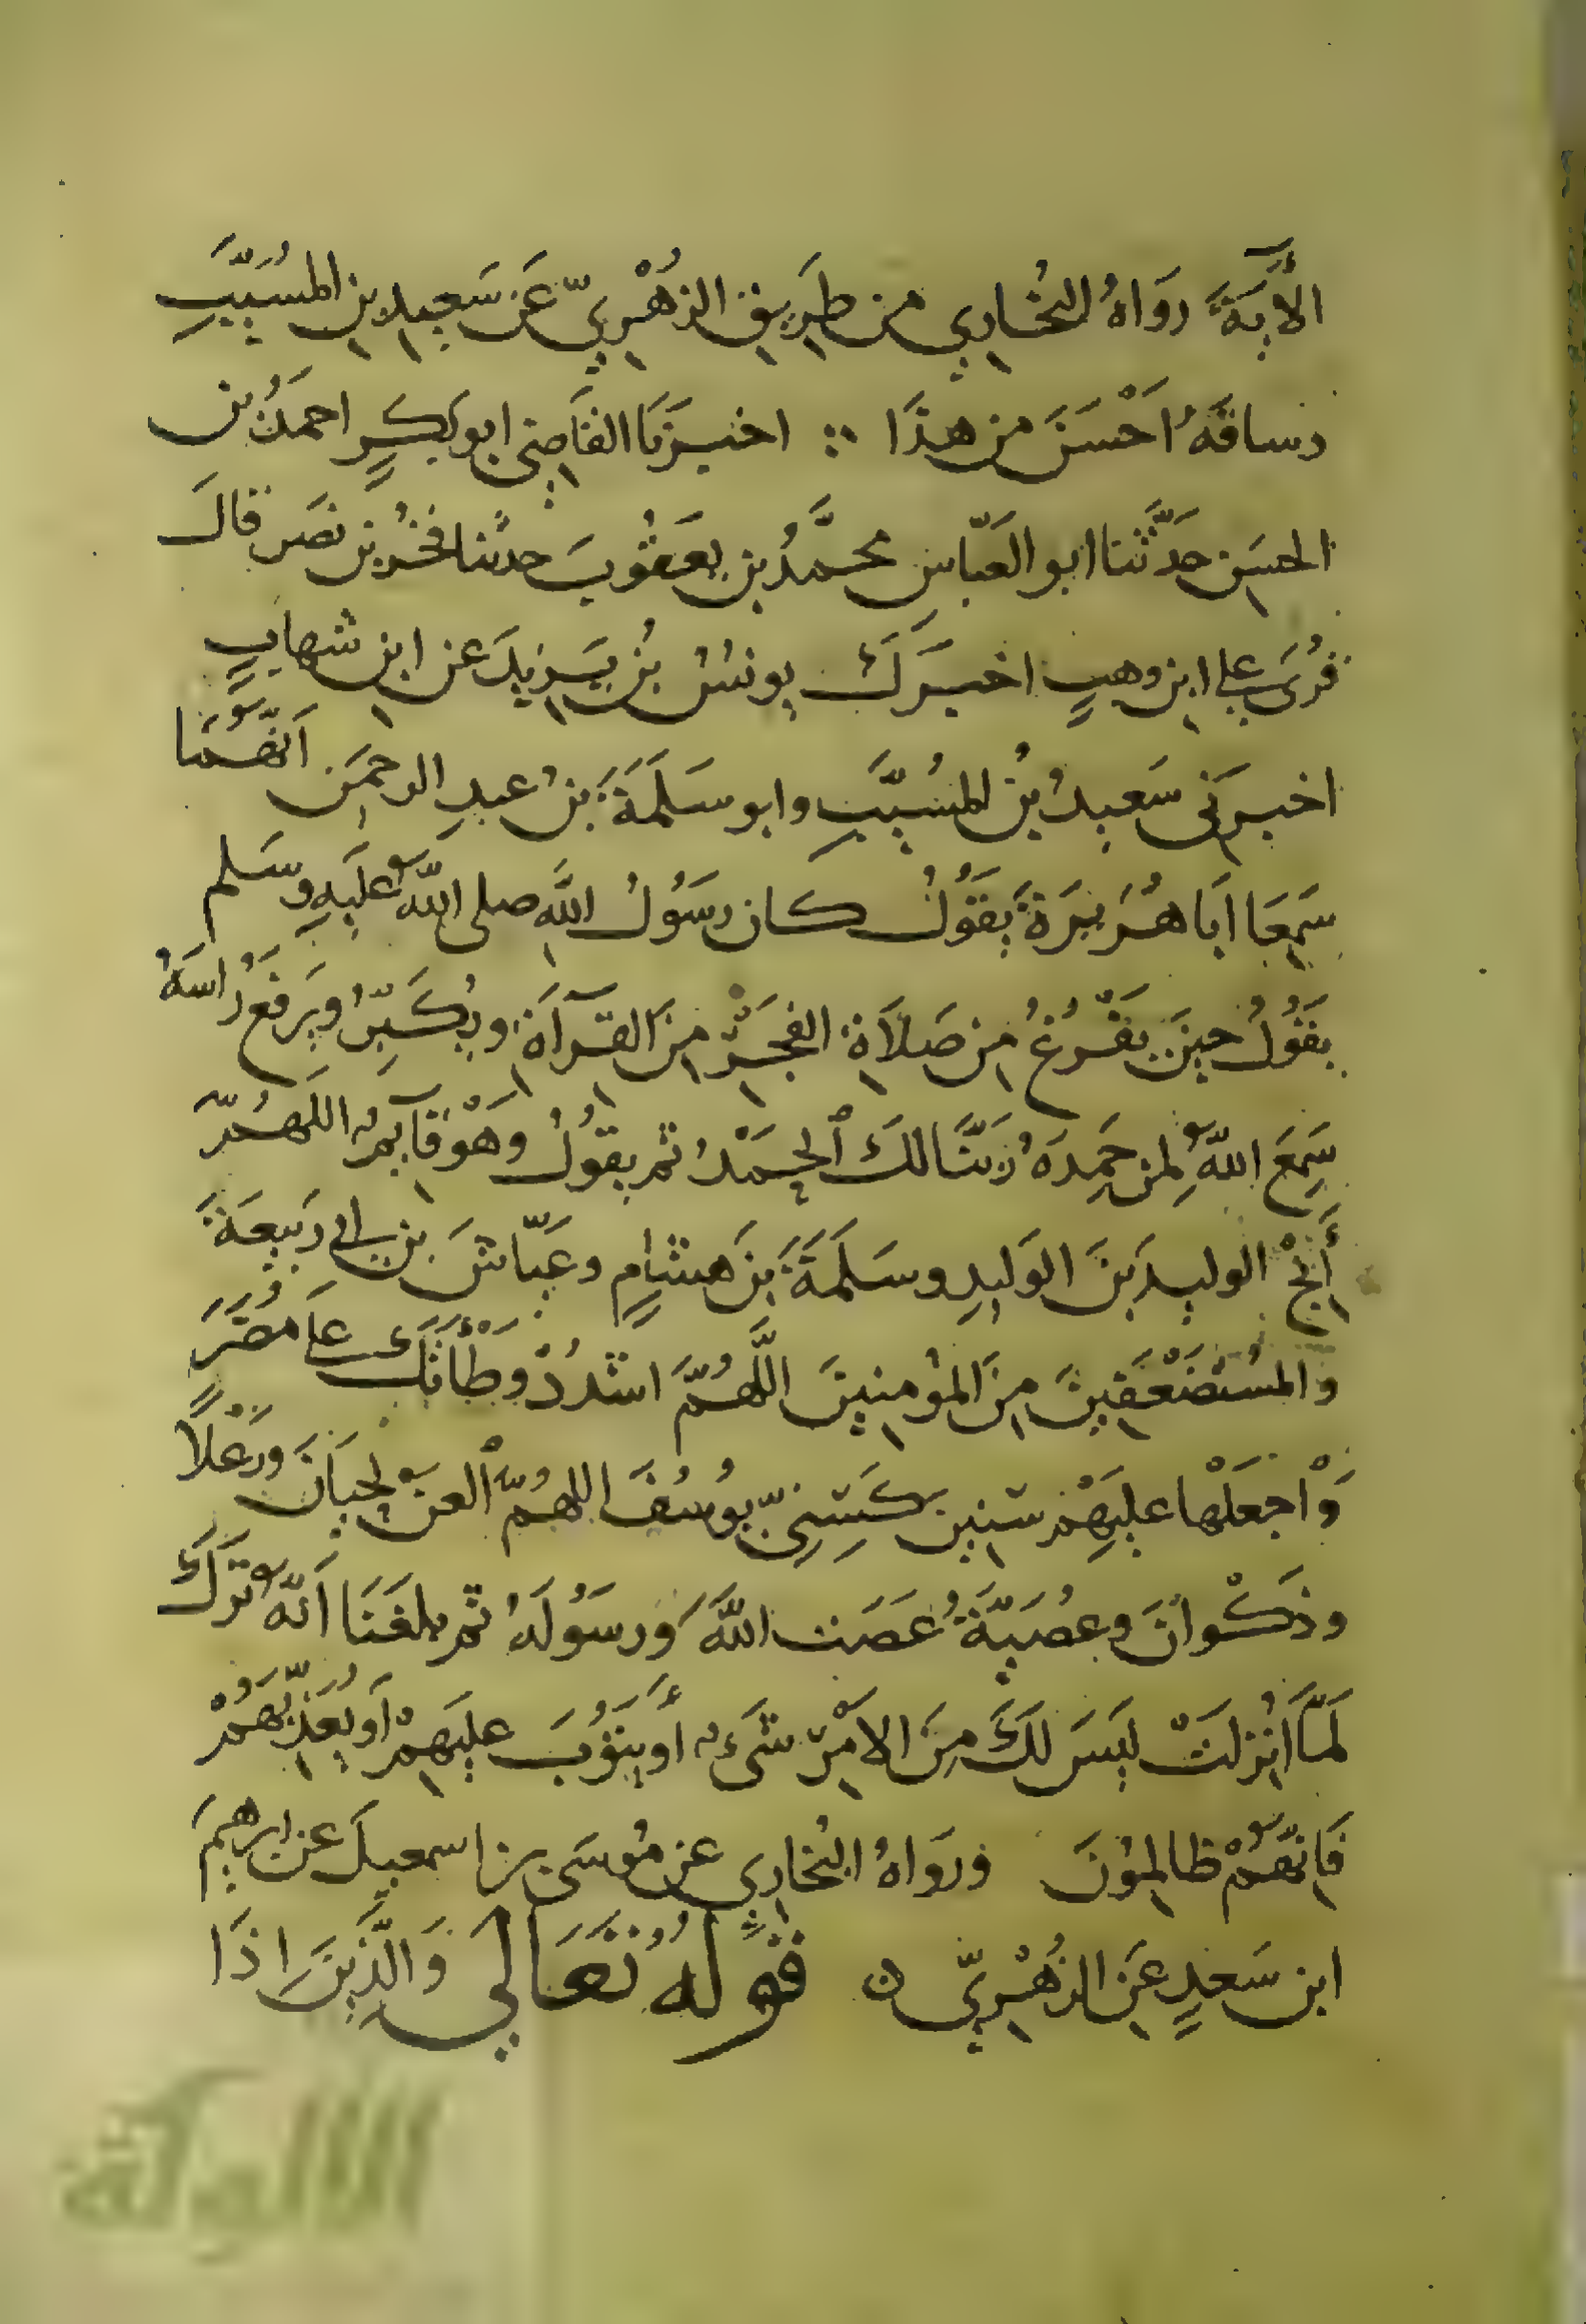 الآيَةَ رَوَاهُ البُخَارِي مِن طَرِيقِ الزُهْرِيِّ عَن سَعِيدِ بنِ المُسَيَّبِ
وساقَهُ اَحْسَنَ من هذَا ؞ اخبرَنَا القَاضِي ابو بَكرٍ احمدُ بن
الحسَنِ حَدَّثنا ابو العَبّاسِ محمَّدُ بن يعقُوبَ حدثنا بحْرُ بن نصَر قالَ
قُرِئَ على ابنِ وهبٍ اخبرَكَ يونسُ بنُ يَزِيدَ عن ابنِ شهابٍ
اخبرَنِي سَعيدُ بنُ المُسَيَّبِ وابو سَلَمَةَ بنُ عبدِ الرحمَنِ اَنَّهُمَا
سَمِعَا اَبَا هُرَيرَةَ يَقُوْلُ كان رسُوْلُ اللَّهِ صلى اللّهُ علَيهِ وسَلم
يَقُوْلُ حينَ يَفْرُغُ مِن صَلاَةِ الفَجْرِ مِنَ القرآءَةِ وَيُكَبِّرُ ويَرفَعُ رَاسَهُ
سَمِعَ اللهُ لِمن حَمِدَهُ رَبَّنَا لكَ اَلحَمْدُ ثم يقوْلُ وَهْوَ قَآيمٌ اللَهُمّ
أَنْجِ الوليدَ بنَ الوَليدِ وسَلَمَةَ بنَ هشَامٍ وعَيّاشَ بن ابي رَبيعَةَ
والمُسْتَضْعَفِينَ مِنَ المؤمِنينَ اللَّهُمّ اشدُدْ وَطْأَتَكَ على مُضَرَ
وَاْجعَلْها علَيهِمْ سِنين كَسِنِيّ يُوسُفَ اللهُمّ اَلعَنْ لِحيَانَ وَرِعْلاً
وذَكْوَانَ وعُصَيّةَ عَصَت اللَّهَ وَرسَوْلَهُ ثم بلغَنَا اَنّهُ تَرَكَ
لَمّا اُنْزِلَتْ لَيسَ لكَ مِنَ الامْرِ شَيءٌ أَوْ يَتوُبَ عليهِمْ اَو يُعَذِّبَهُمْ
فَاِنّهُمْ ظالمِوُنَ ورَوَاهُ البُخارِي عن مُوسَى بن اسمعيلَ عن ابرهيمَ
ابن سَعدٍ عَنِ الزُهْرِيِّ ن قَولُه تَعَالَى وَالَّذِينَ اِذَا
الألوكة